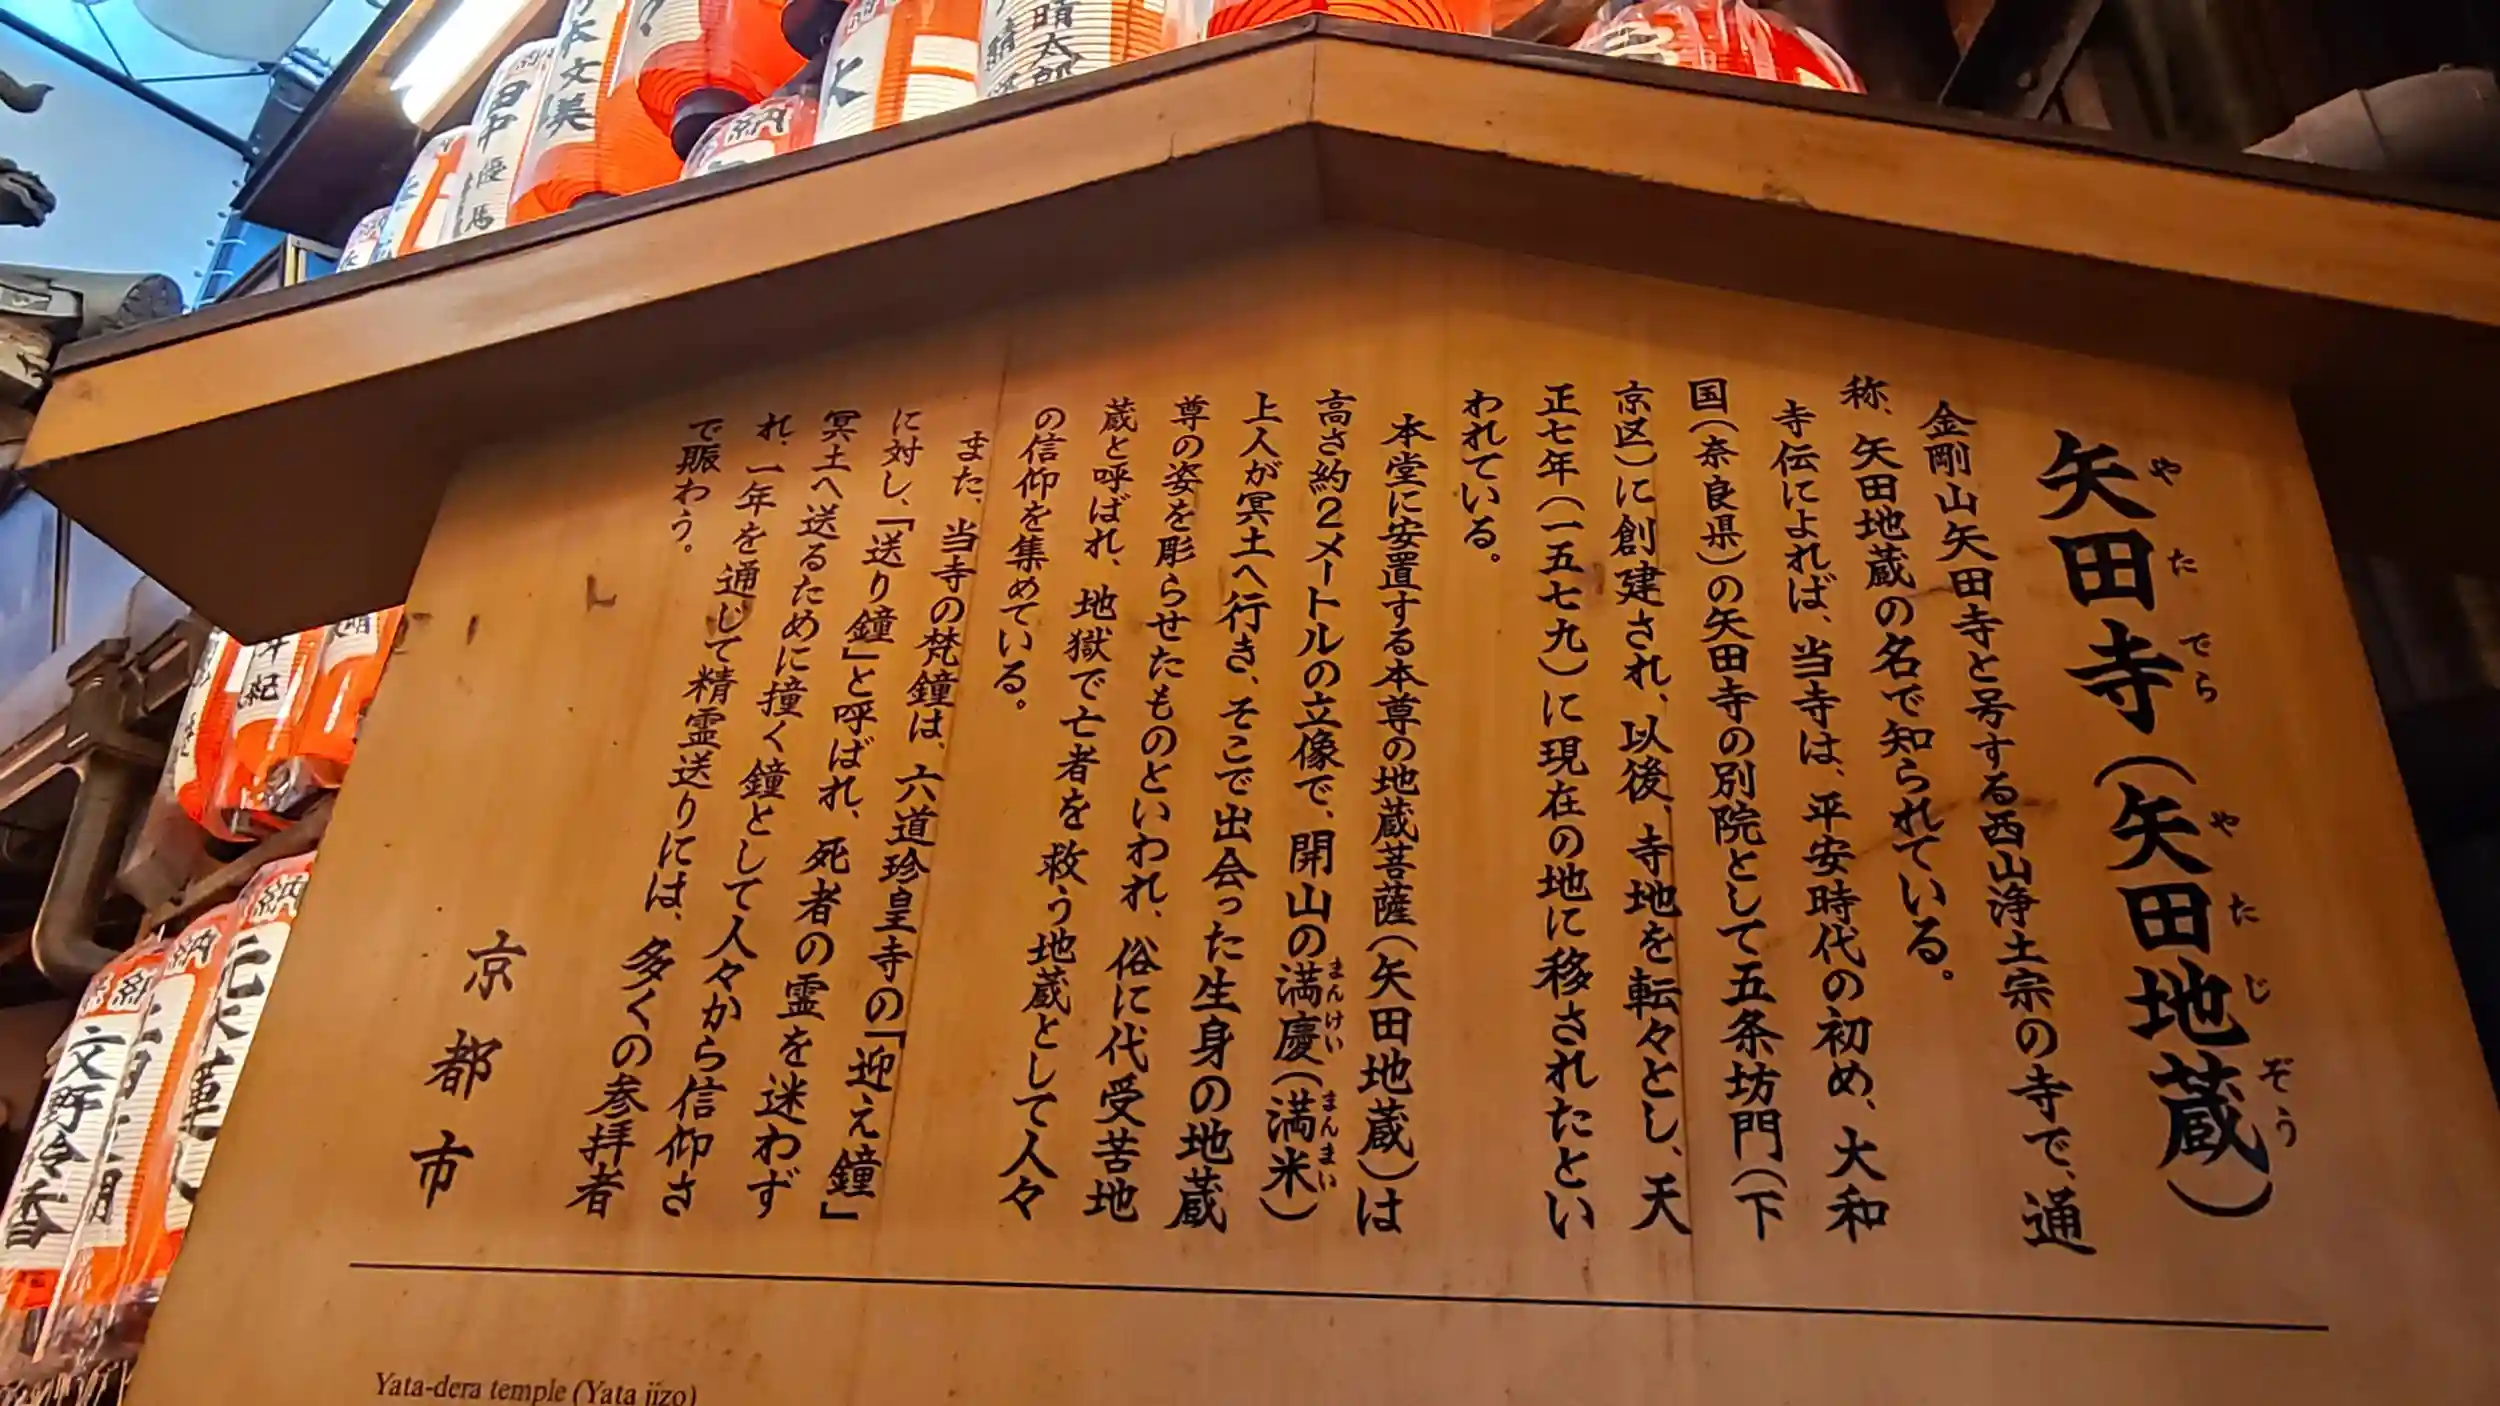 矢田寺（矢田地蔵）
やたでら
やたじぞう
金剛山矢田寺と号する西山浄土宗の寺で、通
称、矢田地蔵の名で知られている。
寺伝によれば、当寺は、平安時代の初め、大和
国（奈良県）の矢田寺の別院として五条坊門（下
京区）に創建され、以後、寺地を転々とし、天
正七年（一五七九）に現在の地に移されたとい
われている。
本堂に安置する本尊の地蔵菩薩（矢田地蔵）は
高さ約2メートルの立像で、開山の満慶（満米）
まんけい
まんまい
上人が冥土へ行き、そこで出会った生身の地蔵
尊の姿を彫らせたものといわれ、俗に代受苦地
蔵と呼ばれ、地獄で亡者を救う地蔵として人々
の信仰を集めている。
また、当寺の梵鐘は、六道珍皇寺の「迎え鐘」
に対し、「送り鐘」と呼ばれ、死者の霊を迷わず
冥土へ送るために撞く鐘として人々から信仰さ
れ、一年を通じて精霊送りには、多くの参拝者
で賑わう。
京都市
Yata-dera temple (Yata jizo)
文野伶香
納
納
納